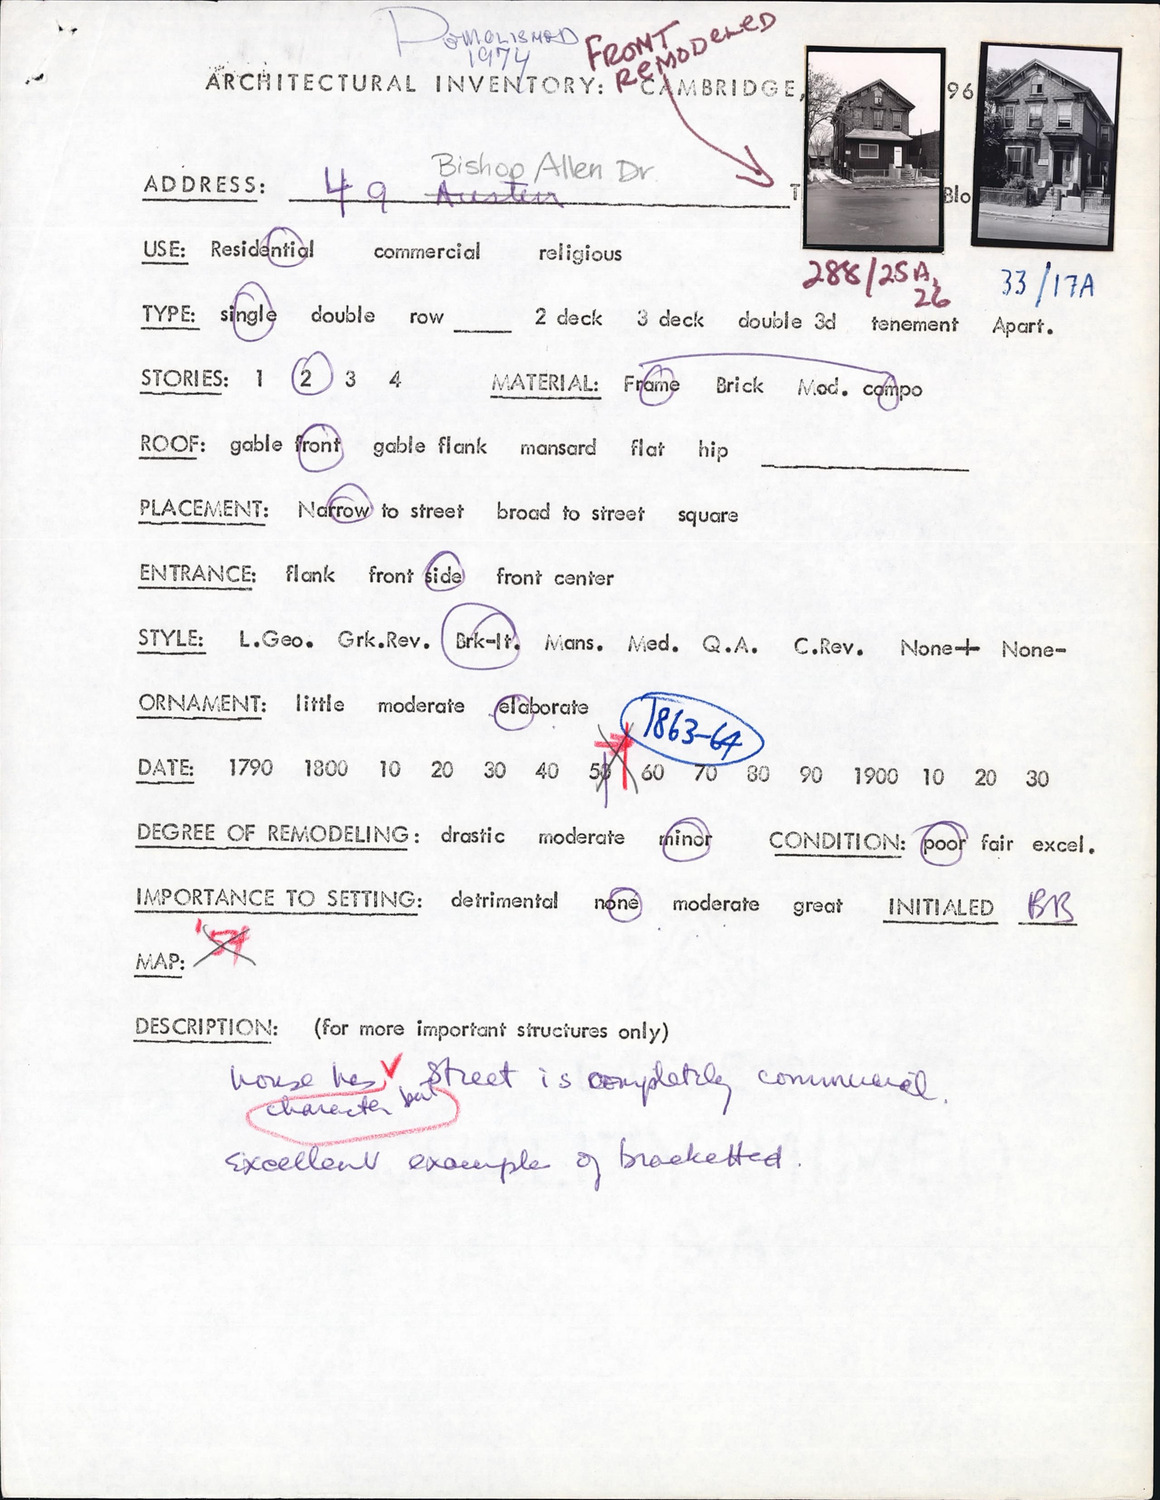 Demolished
1974
FRONT
REMODELED
ARCHITECTURAL INVENTORY: CAMBRIDGE, 96
Bishop Allen Dr.
ADDRESS: 49 Austin T Blo
288/25A,
26
33/17A
USE: Residential commercial religious
TYPE: single double row ____ 2 deck 3 deck double 3d tenement Apart.
STORIES: 1 2 3 4 MATERIAL: Frame Brick Mod. compo
ROOF: gable front gable flank mansard flat hip ____
PLACEMENT: Narrow to street broad to street square
ENTRANCE: flank front side front center
STYLE: L.Geo. Grk.Rev. Brk-It. Mans. Med. Q.A. C.Rev. None+ None-
ORNAMENT: little moderate elaborate
1863-64
DATE: 1790 1800 10 20 30 40 50 60 70 80 90 1900 10 20 30
DEGREE OF REMODELING: drastic moderate minor CONDITION: poor fair excel.
IMPORTANCE TO SETTING: detrimental none moderate great INITIALED BB
MAP: '54
DESCRIPTION: (for more important structures only)
house has street is completely commercial.
character but
Excellent example of bracketted.